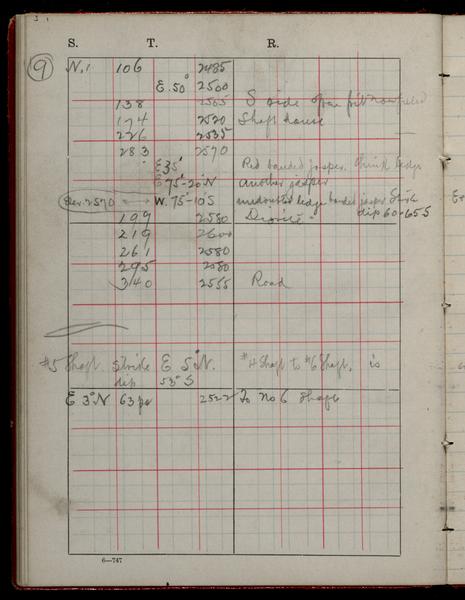 9
S. T. R.
N. 1 106 2485
E. 50° 2500
138 2505 S side open pit now filled
174 2520 Shaft house
226 2535
283 2570
E 35° Red banded jasper.
E 75°-20°N another jasper
Elev. 2570 W. 75-10S undoubted ledge banded jasper Strike
dip 60-65 S
199 2580 Diorite
219 2600
261 2580
295 2580
340 2555 Road
#5 Shaft. Strike E 5°N. #4 Shaft to #6 Shaft. is
dip 53° S
E 3°N 63 pa 2522 To No 6 Shaft
6—747